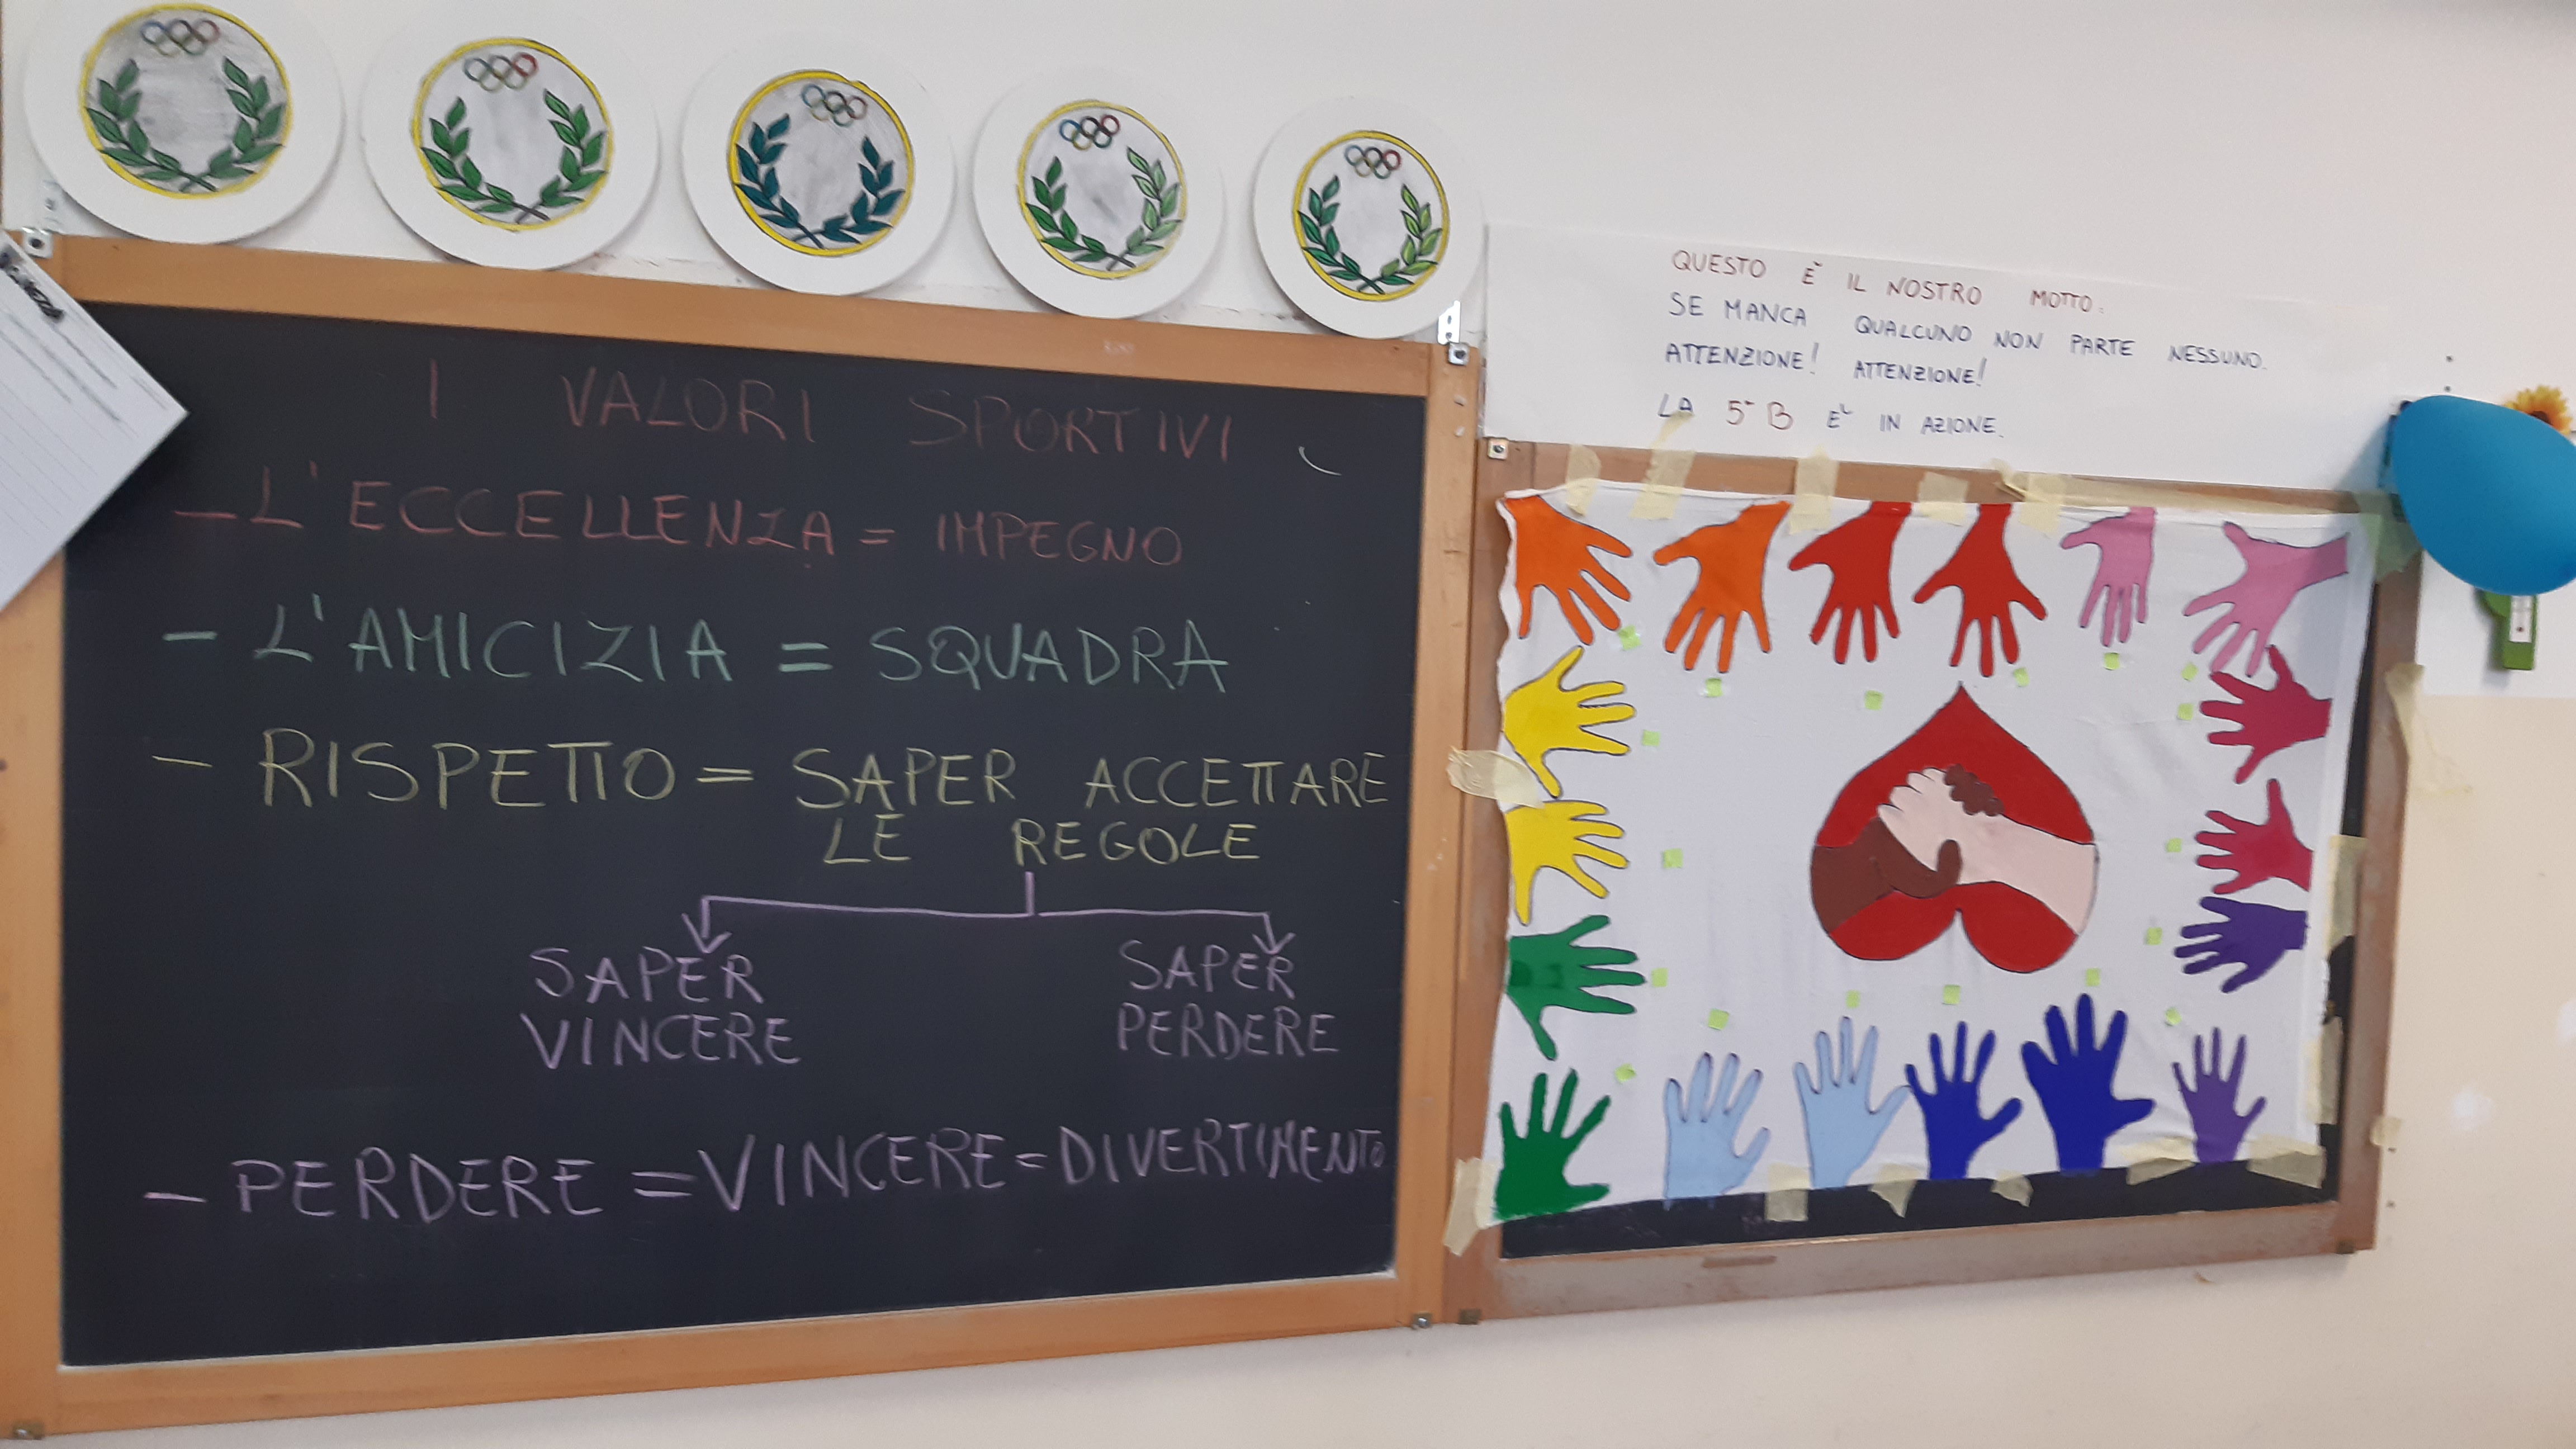 I VALORI SPORTIVI
- L'ECCELLENZA = IMPEGNO
- L'AMICIZIA = SQUADRA
- RISPETTO = SAPER ACCETTARE
LE REGOLE
SAPER SAPER
VINCERE PERDERE
- PERDERE = VINCERE = DIVERTIMENTO
QUESTO È IL NOSTRO MOTTO:
SE MANCA QUALCUNO NON PARTE NESSUNO.
ATTENZIONE! ATTENZIONE!
LA 5ª B È IN AZIONE.